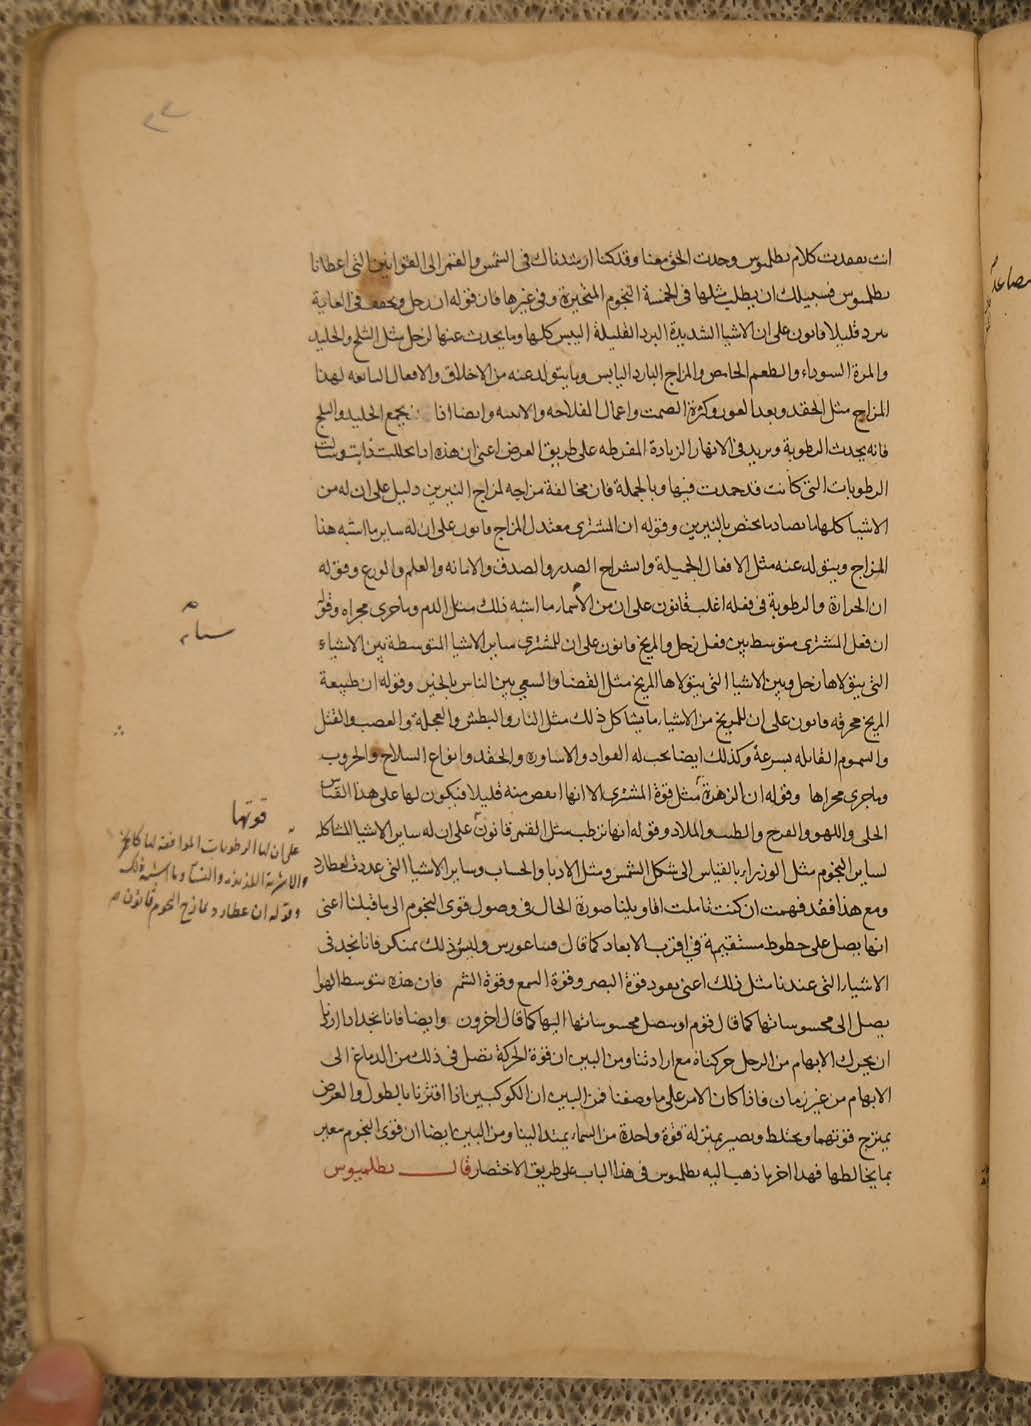 ٢٣
انت تفقدت كلام بطلميوس وجدت الحق معنا وقد كنا ارشدناك فى الشمس والقمر الى القوانين التى اعطانا
بطلميوس فسبيلك ان تطلب مثلها فى الخمسة النجوم المتحيرة وفى غيرها فان قوله ان زحل ويجفف فى الغاية
يبرد قليلا قانون على ان الاشيا الشديدة البرد القليلة اليبس كلها وما يحدث عنها لزحل مثل الثلج والجليد
والمرة السوداء والطعم الحامض والمزاج البارد اليابس وما يتولد عنه من الاخلاق والافعال التابعه لهذا
المزاج مثل الحقد وبعد الغور وكثرة الصمت واعمال الفلاحه والابنيه وايضا اذا يجمع الجليد والثلج
فانه يحدث الرطوبة ويزيد فى الانهار الزيادة المفرطه على طريق العرض اعنى ان هذه اذا تحللت ذابت وسالت
الرطوبات التى كانت قد جمدت فيها وبالجملة فان مخالفة مزاجه لمزاج النيرين دليل على ان له من
الاشيا كلها ما يضاد ما يختص بالنيرين وقوله ان المشترى معتدل المزاج قانون على ان له ساير ما اشبه هذا
المزاج ويتولد عنه مثل الافعال الجميلة وانشراح الصدر والصدق والامانه والعلم والورع وقوله
ان الحرارة والرطوبة فى فعله اغلب قانون على ان من الاشيا ما اشبه ذلك مثل الدم وما جرى مجراه وقوله
ان فعل المشترى متوسط بين فعل زحل والمريخ قانون على ان للمشترى ساير الاشيا المتوسطة بين الاشياء
التى يتولاها زحل وبين الاشيا التى يتولاها المريخ مثل القضا والسعى بين الناس بالخير وقوله ان طبيعة
المريخ محرقه قانون على ان للمريخ من الاشياء ما يشاكل ذلك مثل النار والبطش والعجلة والغضب والقتل
والسموم القاتله بسرعة وكذلك ايضا يجب له القواد والاساوره والحقد وانواع السلاح والحروب
وما جرى مجراها وقوله ان الزهرة مثل قوة المشترى الا انها انقص منه قليلا فيكون لها على هذا القياس
الحلى واللهو والفرح والطيب والملاد وقوله انها ترطب مثل القمر قانون على ان له ساير الاشيا المشاكلة
لساير النجوم مثل الوزراء بالقياس الى شكل الشمس ومثل الادبا والحساب وساير الاشيا التى عددت لعطارد
ومع هذا فقد فهمت ان كنت تاملت اقاويلنا صورة الحال فى وصول قوى النجوم الى ما قبلنا اعنى
انها يصل على خطوط مستقيمة فى اقرب الابعاد كما قال فيثاغورس وليس ذلك بمنكر فانا نجد فى
الاشياء التى عندنا مثل ذلك اعنى بقود قوة البصر وقوة السمع وقوة الشم فان هذه بتوسط الهوا
يصل الى محسوساتها كما قال قوم او يتصل محسوساتها اليها كما قال اخرون وايضا فانا نجد اذا اردنا
ان يحرك الابهام من الرجل حركناه مع ارادتنا ومن البين ان قوة الحركة تصل فى ذلك من الدماغ الى
الابهام من غير زمان فاذا كان الامر على ما وصفنا فمن البين ان الكوكبين اذا اقترنا بالطول والعرض
يمتزج قوتهما ويختلط ويصير بمنزلة قوة واحدة من السماء يمتد الينا ومن البين ايضا ان قوى النجوم تتغير
بما يخالطها فهذا اخر ما ذهب اليه بطلميوس فى هذا الباب على طريق الاختصار قال بطلميوس
قوتها
على ان لها الرطوبات الموافقة لها كالخمر
والاشربة اللذيذه والنسآ وما اشبه ذلك
وقوله ان عطارد يمازج النجوم قانون